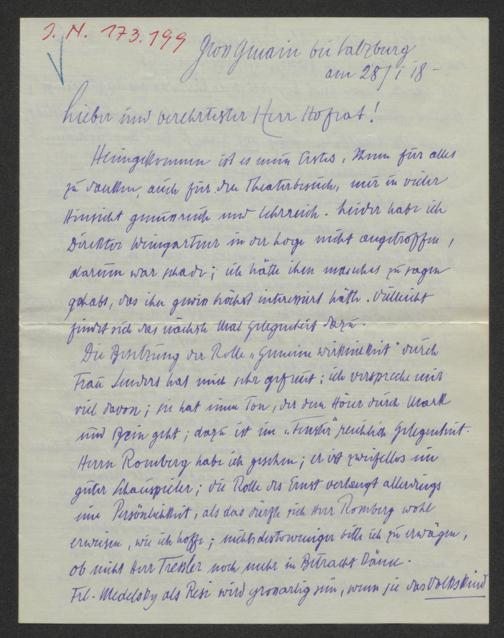 I. N. 173.199
Gross Gmain bei Salzburg
am 28/I 18 -
Lieber und verehrtester Herr Hofrat!
Heimgekommen ist es mein Erstes, Ihnen für alles
zu danken, auch für den Theaterbesuch, mir in vieler
Hinsicht genussreich und lehrreich. Leider habe ich
Direktor Weingartner in der Loge nicht angetroffen,
darum war schade; ich hätte ihm manches zu sagen
gehabt, das ihn gewiss höchst interessiert hätte. Vielleicht
findet sich das nächste Mal Gelegenheit dazu.
Die Besetzung der Rolle „Gemeine Wirklichkeit" durch
Frau Senders hat mich sehr gefreut; ich verspreche mir
viel davon; sie hat einen Ton, der dem Hörer durch Mark
und Bein geht; dazu ist im „Fenster" reichlich Gelegenheit.
Herrn Romberg habe ich gesehen; er ist zweifellos ein
guter Schauspieler; die Rolle des Ernst verlangt allerdings
eine Persönlichkeit, als das dürfte sich Herr Romberg wohl
erweisen, wie ich hoffe; nichtsdestoweniger bitte ich zu erwägen,
ob nicht Herr Tressler noch mehr in Betracht käme.
Frl. Medelsky als Resi wird grossartig sein, wenn sie das Volkskind